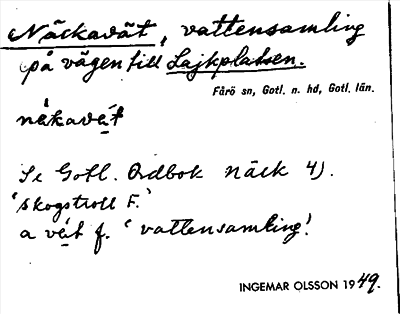 Näckavät, vattensamling
på vägen till Lajkplatsen.
Fårö sn, Gotl. n. hd, Gotl. län.
näkavät
Se Gotl. Ordbok näck 4).
'skogstroll F.'
a vät f. 'vattensamling'
INGEMAR OLSSON 1949.